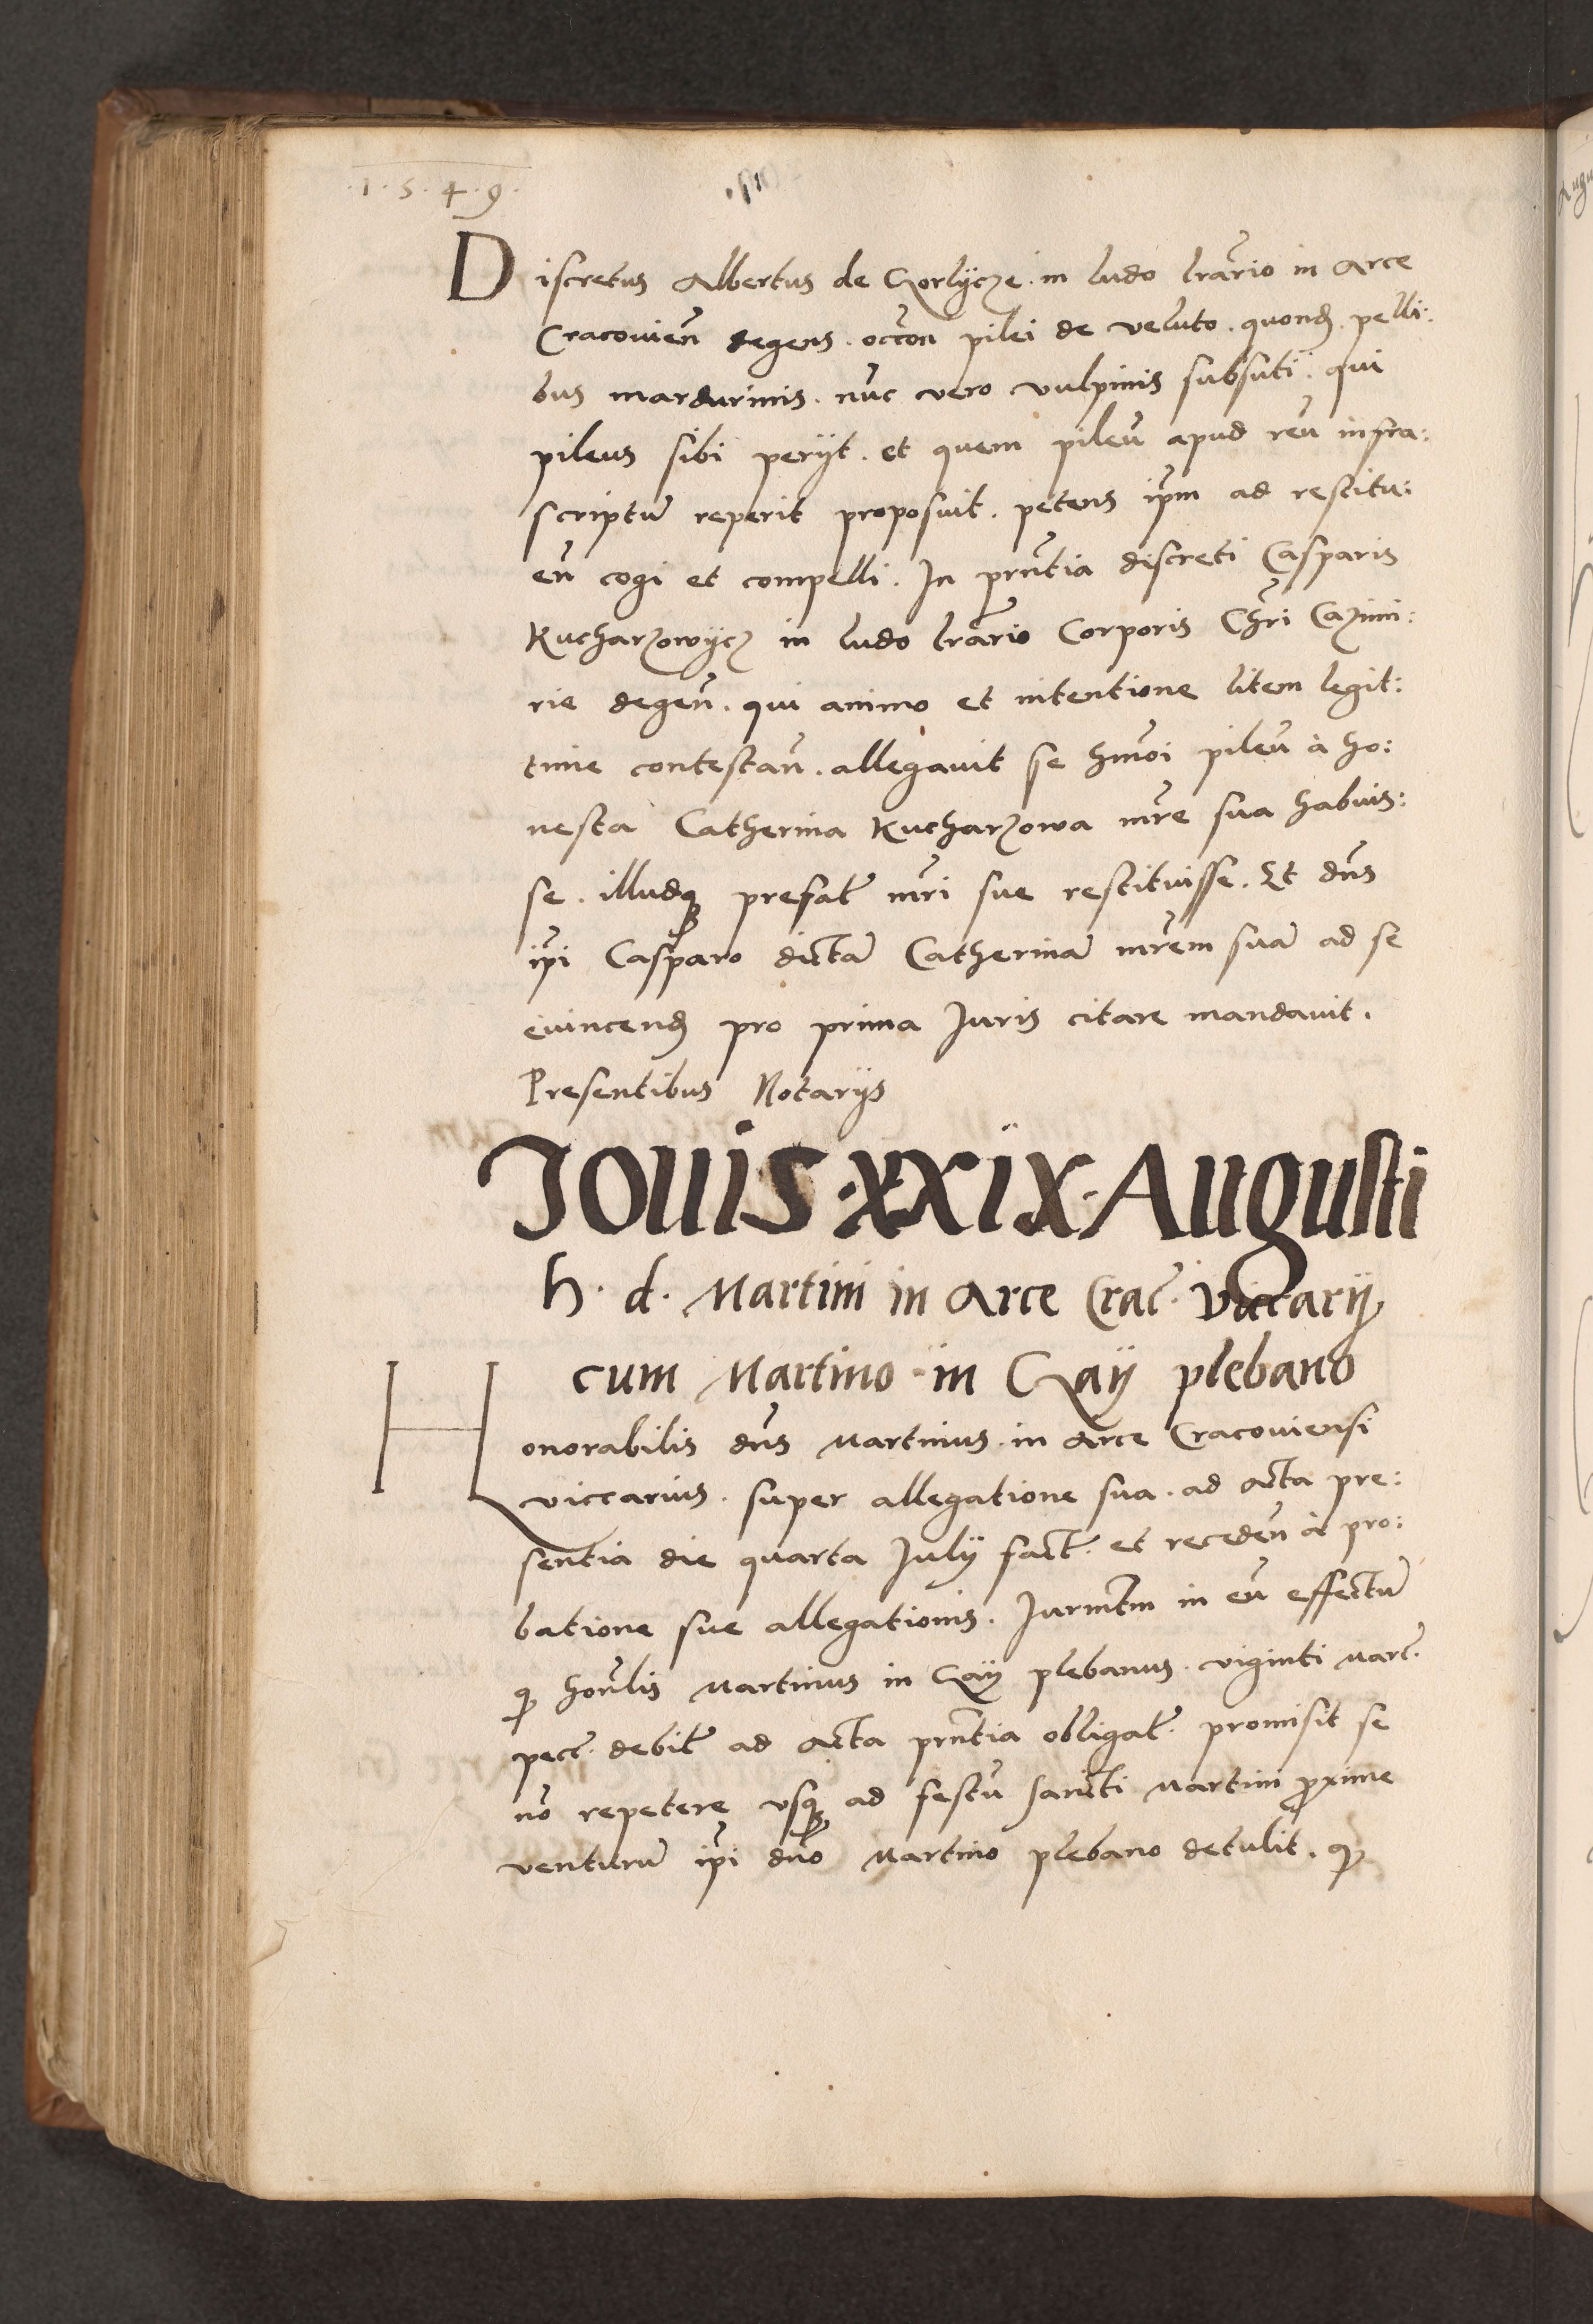 .1.5.4.9.
Discretus Albertus de Gorlÿcze. in ludo lr̃ario in Arce
Cracovien̄ degens. occõn pilei de veluto. quond̄. pelli:
bus mardurinis. nũc vero vulpinis subsuti. qui
pileus sibi perijt. et quem pileũ apud reũ infra:
scriptũ reperit proposuit. petens ip̃m ad restitu:
en̄ cogi et compelli. In pn̄tia discreti Casparis
Kucharzowÿcz in ludo lr̃ario Corporis Chr̃i Cazimi:
rie degen̄. qui animo et intentione litem legit:
time contestan̄. allegavit se hm̃oi pileũ à ho:
nesta Catherina Kucharzowa mr̃e sua habuis:
se. illudq3 prefat̃ mr̃i sue restituisse. Et dñs
ip̃i Casparo dictã Catherinã mr̃em suã ad se
evincend̄ pro prima Juris citare mandavit.
Presentibus Notarijs
Jouis .xxix. Augusti
h. d. Martini in Arce Crac̃. viccarij
cum Martino in Gay plebano
Honorabilis dñs Martinus. in Arce Cracoviensi
viccarius. super allegatione sua. ad acta pre:
sentia die quarta Julÿ fact̃. et receden̄ à pro:
batione sue allegationis. Jurm̃tm in eũ effectũ
q honr̃lis Martinus in Gaÿ plebanus. viginti marc̃.
pecc̃. debit̃ ad acta pn̄tia obligat̃. promisit se
nõ repetere usq3 ad festũ sancti Martini proxime
venturũ ip̃i dño Martino plebano detulit. q